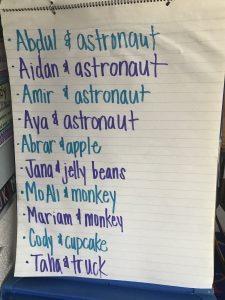 · Abdul & astronaut
· Aidan & astronaut
· Amir & astronaut
· Aya & astronaut
· Abrar & apple
· Jana & jelly beans
· MoAli & monkey
· Mariam & monkey
· Cody & cupcake
· Talia & truck